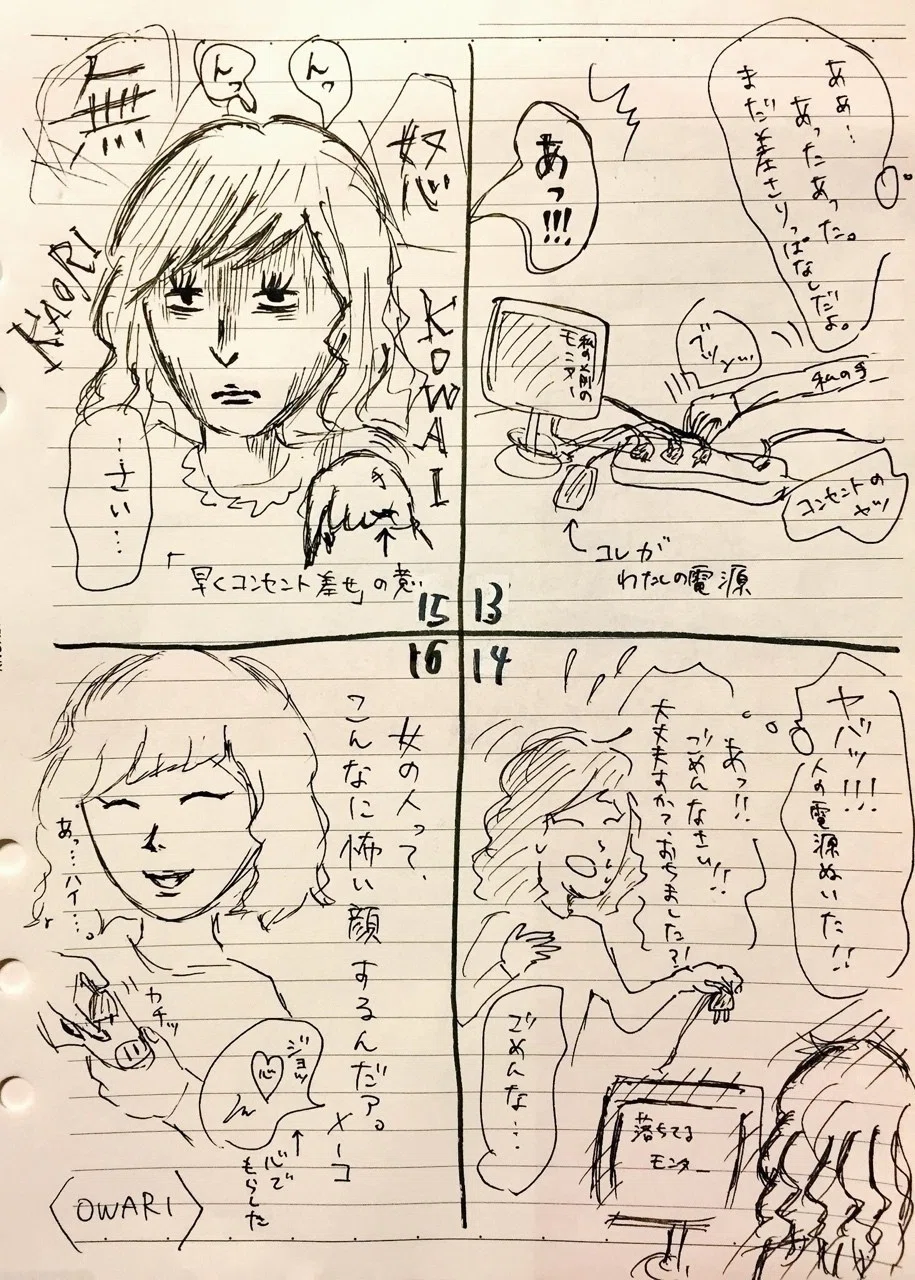 あぁ…
あったあった。
まだ差さりっぱなしだよ。
あっ!!!
私の×別の
モニター
ブツッ…
私の手
コンセントの
ヤツ
コレが
わたしの電源
13
ヤバッ!!!
人の電源ぬいた!!
あっ!!
ごめんなさい!!
大丈夫すか?、おちました?!
ごめんな…
落ちてる
モニター
14
んっ
んっ
無
怒
KAORI
KOWAI
…さい…
「早くコンセント差せ」の意
15
女の人って、
こんなに怖い顔するんだァ。
メーコ
あっ…ハイ…。
カチッ
ジョッ
心
↑心で
もらした
OWARI
16